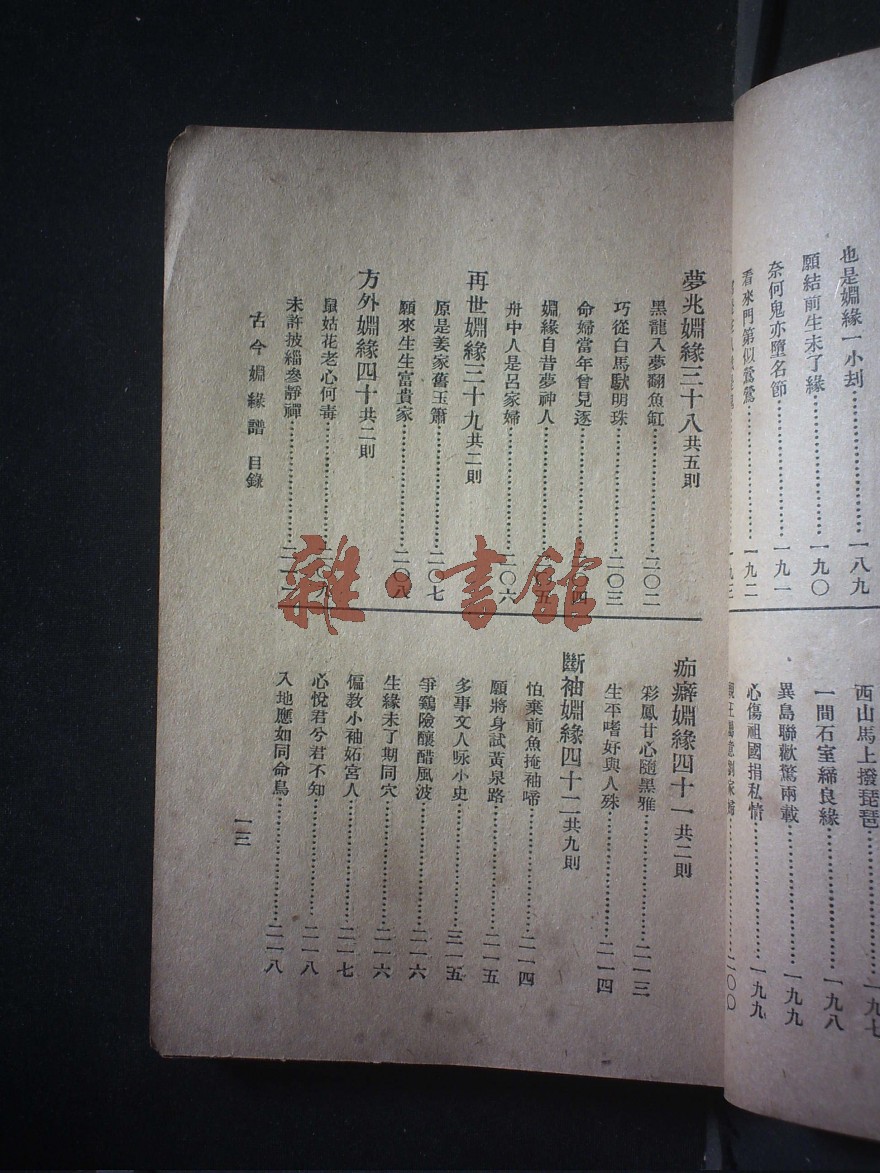 也是婣緣一小刦……一八九
願結前生未了緣……一九〇
奈何鬼亦墮名節……一九一
看來門第似鶯鶯……一九二
一九三
西山馬上撥琵琶……一九七
一間石室締良緣……一九八
異島聯歡驚兩載……一九九
心傷祖國捐私情……一九九
二〇〇
夢兆婣緣三十八共五則
黑龍入夢翻魚缸……二〇二
巧從白馬獻明珠……二〇三
命婦當年曾見逐……二〇四
婣緣自昔夢神人……二〇五
舟中人是呂家婦……二〇六
再世婣緣三十九共二則
原是姜家舊玉簫……二〇七
願來生生富貴家……二〇八
方外婣緣四十共二則
鼠姑花老心何毒……二〇八
未許披緇參靜禪……二一一
痂癖婣緣四十一共二則
彩鳳甘心隨黑雅……二一三
生平嗜好與人殊……二一四
斷袖婣緣四十二共九則
怕棄前魚掩袖啼……二一四
願將身試黃泉路……二一五
多事文人咏小史……三一五
爭鷄險釀醋風波……二一六
生緣未了期同穴……二一六
偏教小袖妬宮人……二一七
心悅君兮君不知……二一八
入地應如同命鳥……二一八
古今婣緣譜 目錄
一三
雜·書館